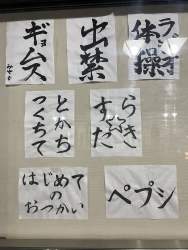 ギョムス
出禁
ラジオ
体操
とかち
つくちて
らき
すた
はじめて
のおつかい
ペプシ